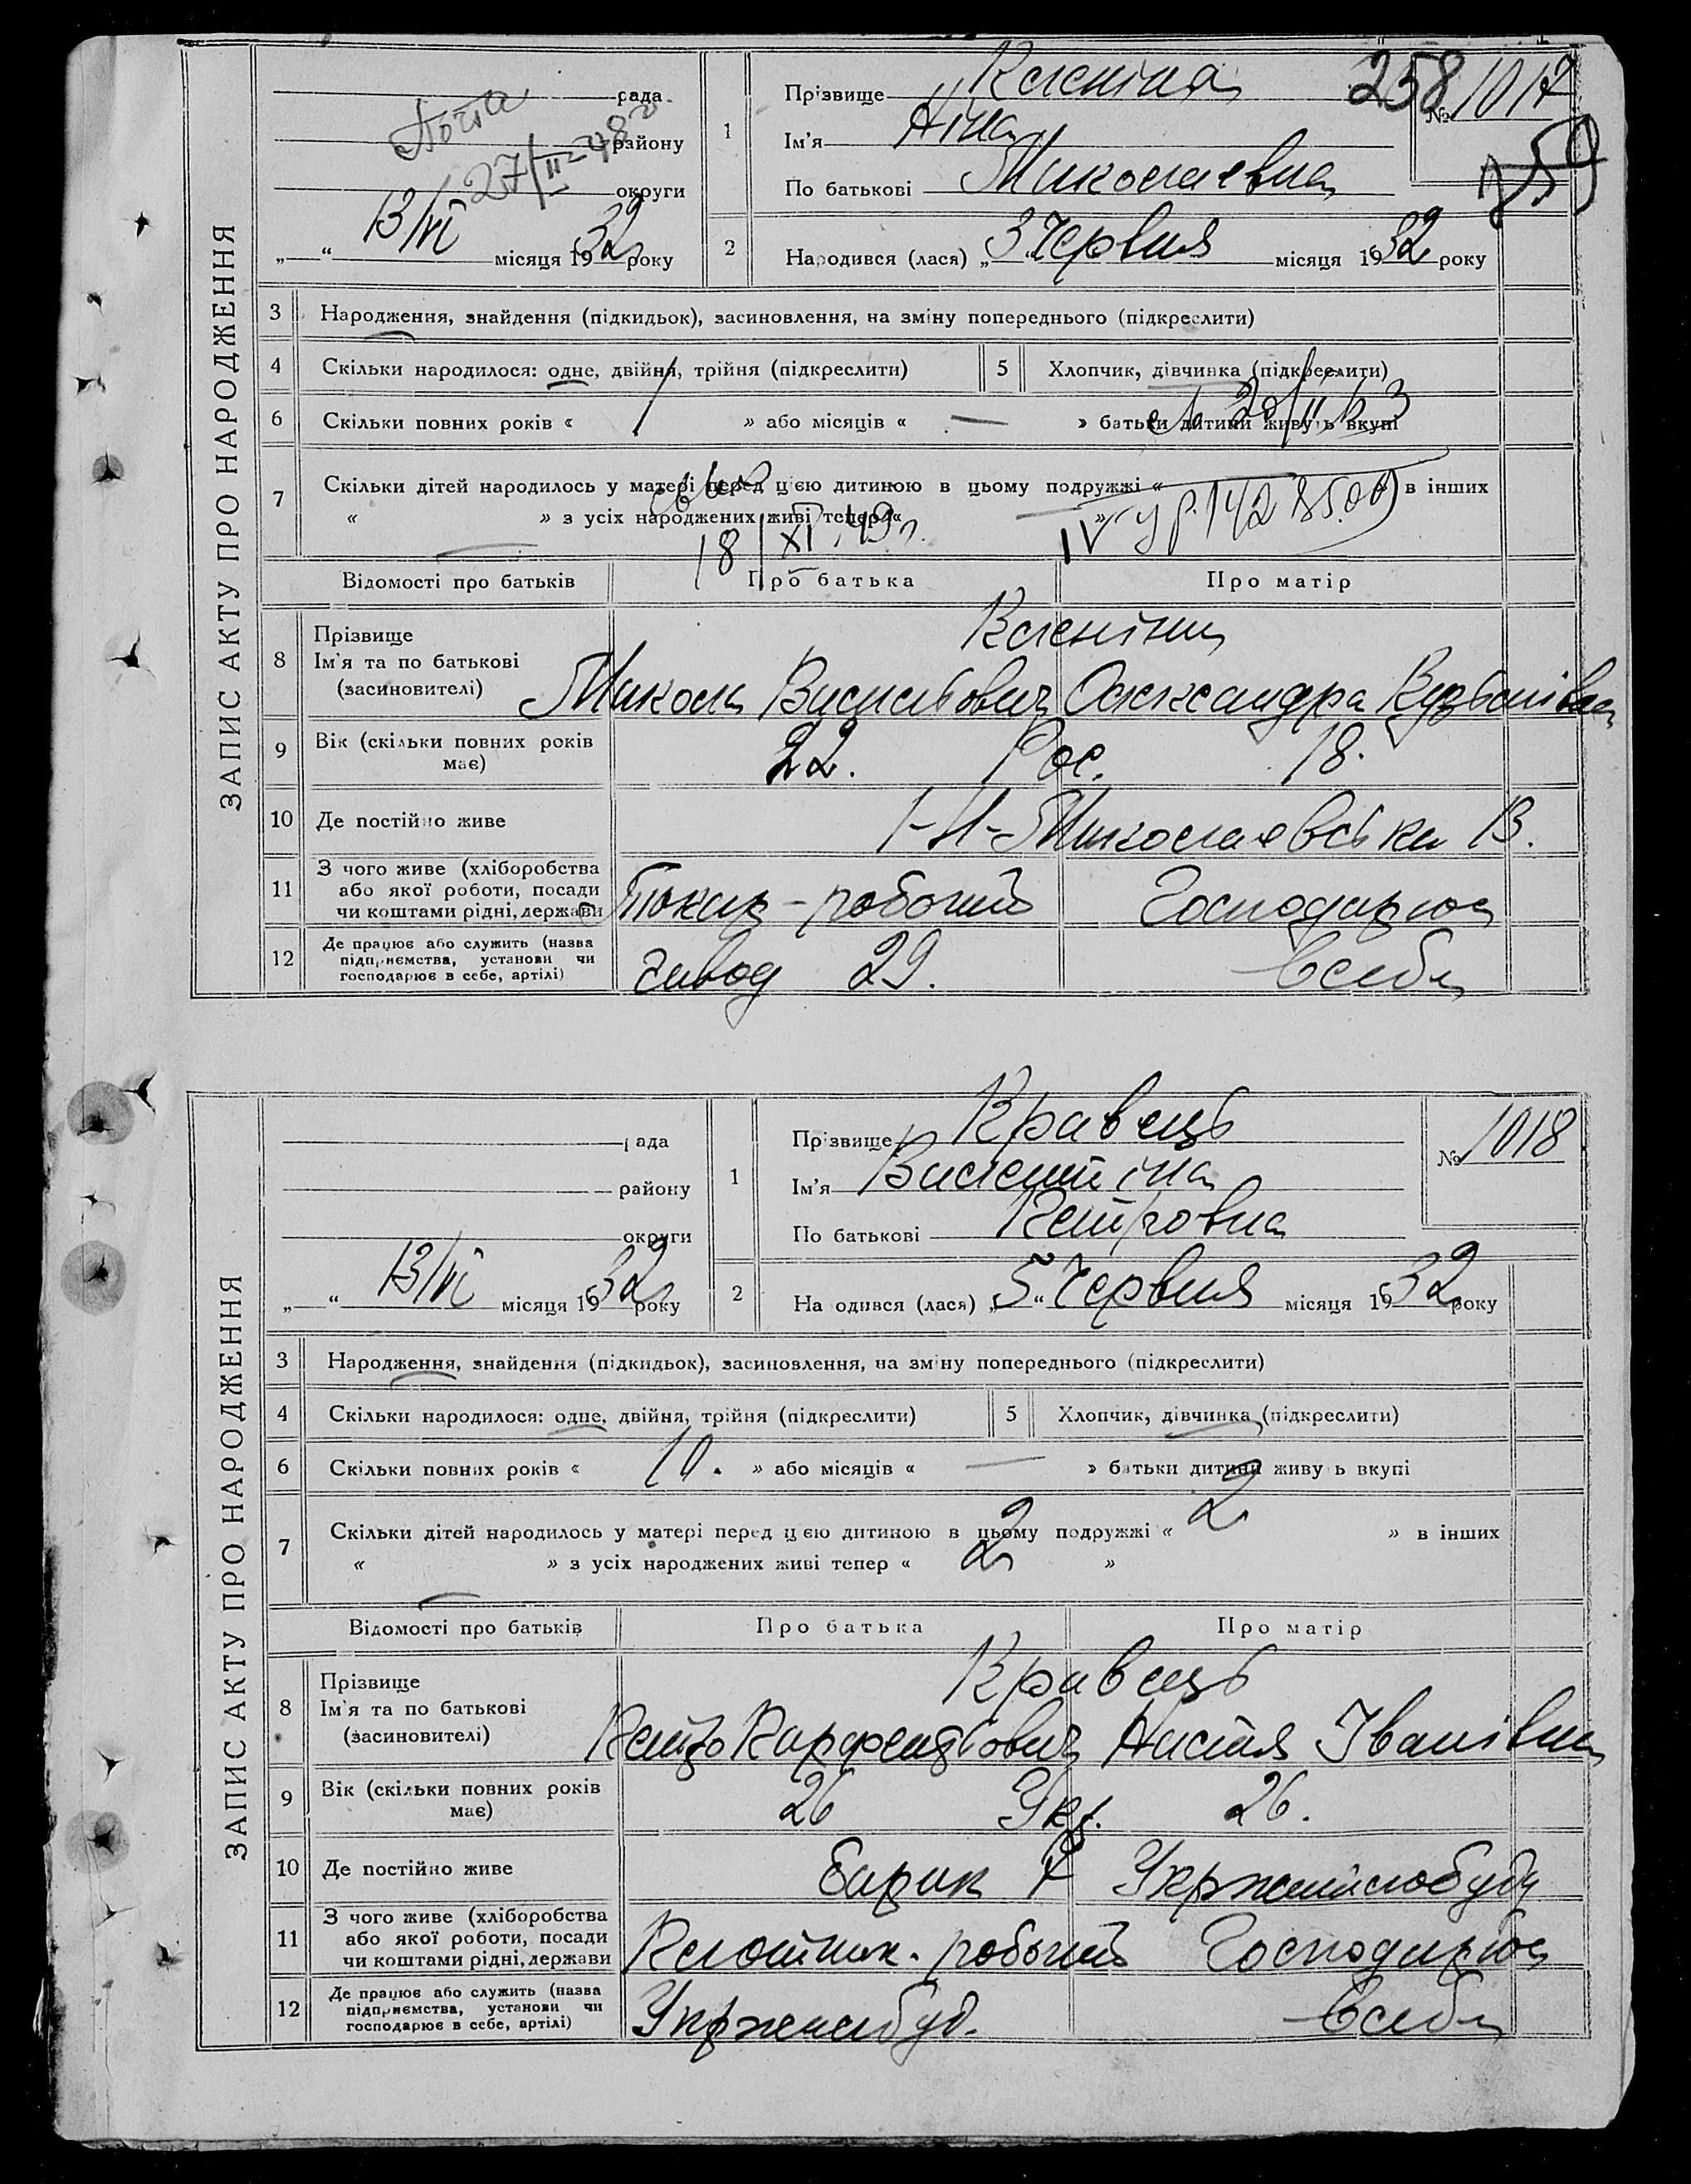 ЗАПИС АКТУ ПРО НАРОДЖЕННЯ
рада
району
округи
Почта
27/II-48
„ “ 13/VI місяця 1932 року
258
№ 1017
259
1 Прізвище Кленіна
Ім'я Ніна
По батькові Миколаевна
2 Народився (лася) „3“ Червня місяця 1932 року
3 Народження, знайдення (підкидьок), засиновлення, на зміну попереднього (підкреслити)
4 Скільки народилося: одне, двійня, трійня (підкреслити) 5 Хлопчик, дівчинка (підкреслити)
6 Скільки повних років « 1 » або місяців « — » батьки дитини живуть вкупі
7 Скільки дітей народилось у матері перед цією дитиною в цьому подружжі « » в інших
« » з усіх народжених живі тепер « — »
18/XI 49
Відомості про батьків Про батька Про матір
8 Прізвище Кленіни
Ім'я та по батькові Микола Васильович Олександра Кузьминівна
(засиновителі)
9 Вік (скільки повних років має) 22. Рос. 18.
10 Де постійно живе 1-Н-Миколаевська 13.
11 З чого живе (хліборобства або якої роботи, посади чи коштами рідні, держави Токар - робочий Господарює
12 Де працює або служить (назва підприємства, установи чи господарює в себе, артілі) завод 29. В себе
ЗАПИС АКТУ ПРО НАРОДЖЕННЯ
рада
району
округи
„ “ 13/VI місяця 1932 року
№ 1018
1 Прізвище Кравець
Ім'я Валентіна
По батькові Петровна
2 Народився (лася) „5“ Червня місяця 1932 року
3 Народження, знайдення (підкидьок), засиновлення, на зміну попереднього (підкреслити)
4 Скільки народилося: одне, двійня, трійня (підкреслити) 5 Хлопчик, дівчинка (підкреслити)
6 Скільки повних років « 10. » або місяців « — » батьки дитини живуть вкупі
7 Скільки дітей народилось у матері перед цією дитиною в цьому подружжі « 2 » в інших
« » з усіх народжених живі тепер « 2 »
Відомості про батьків Про батька Про матір
8 Прізвище Кравець
Ім'я та по батькові Петро Настя Іванівна
(засиновителі)
9 Вік (скільки повних років має) 26 Укр. 26.
10 Де постійно живе Барак 7
11 З чого живе (хліборобства або якої роботи, посади чи коштами рідні, держави робочий Господарює
12 Де працює або служить (назва підприємства, установи чи господарює в себе, артілі) В себе